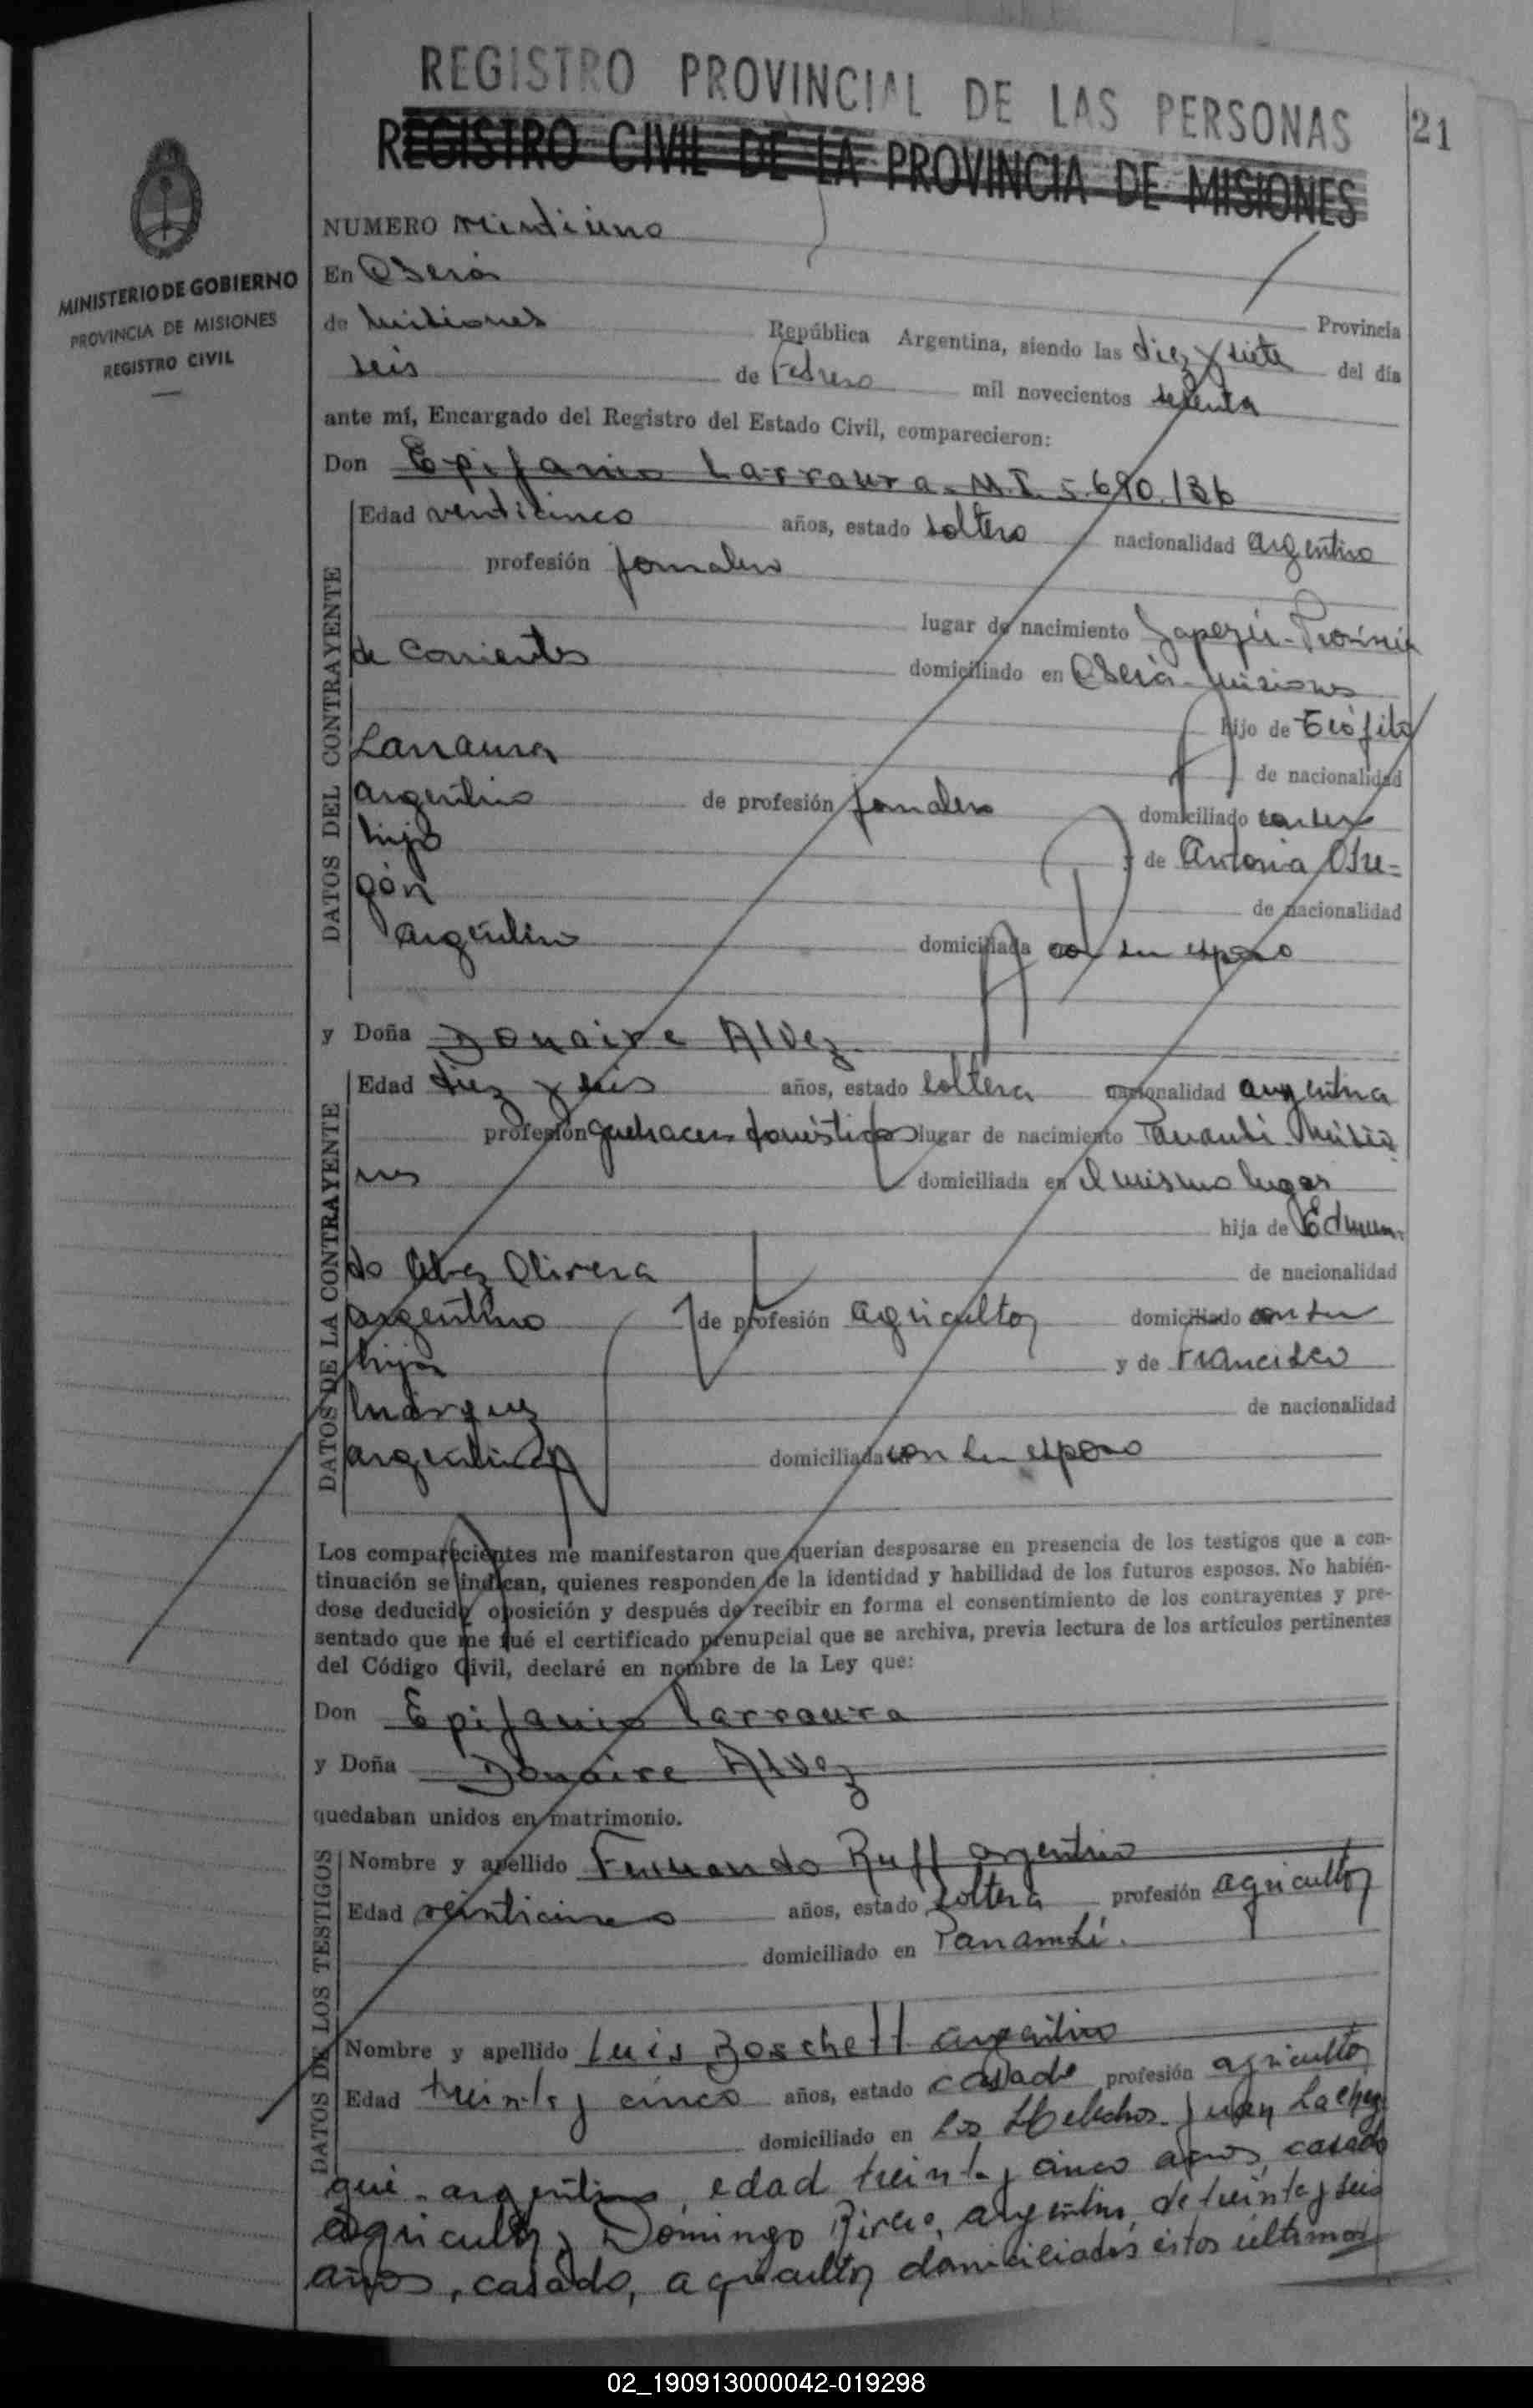 REGISTRO PROVINCIAL DE LAS PERSONAS
21
REGISTRO CIVIL DE LA PROVINCIA DE MISIONES
MINISTERIO DE GOBIERNO
PROVINCIA DE MISIONES
REGISTRO CIVIL
NUMERO veintiuno
En Oberá
Provincia
de Misiones República Argentina, siendo las diez y siete del día
seis de Febrero mil novecientos setenta
ante mí, Encargado del Registro del Estado Civil, comparecieron:
Don Epifanio Larraura. M.I. 5.690.136
DATOS DEL CONTRAYENTE
Edad venticinco años, estado soltero nacionalidad argentino
profesión jornalero
lugar de nacimiento Yapeyú - Provincia
de Corrientes domiciliado en Oberá - Misiones
hijo de Teófilo
Larraura de nacionalidad
argentino de profesión jornalero domiciliado con su
hijo y de Antonia Obre-
gón de nacionalidad
argentina domiciliada con su esposo
y Doña Donaire Alvez
DATOS DE LA CONTRAYENTE
Edad diez y seis años, estado soltera nacionalidad argentina
profesión quehaceres domésticos lugar de nacimiento Panambí Misio
nes domiciliada en el mismo lugar
hija de Edmun-
do Alvez Olivera de nacionalidad
argentino de profesión agricultor domiciliado con su
hija y de Francisca
Márquez de nacionalidad
argentina domiciliada con su esposo
Los comparecientes me manifestaron que querían desposarse en presencia de los testigos que a con-
tinuación se indican, quienes responden de la identidad y habilidad de los futuros esposos. No habién-
dose deducido oposición y después de recibir en forma el consentimiento de los contrayentes y pre-
sentado que me fué el certificado prenupcial que se archiva, previa lectura de los artículos pertinentes
del Código Civil, declaré en nombre de la Ley que:
Don Epifanio Larraura
y Doña Donaire Alvez
quedaban unidos en matrimonio.
DATOS DE LOS TESTIGOS
Nombre y apellido Fernando Ruff argentino
Edad veinticinco años, estado soltera profesión agricultor
domiciliado en Panambí.
Nombre y apellido Luis Boschett argentino
Edad treinta y cinco años, estado casado profesión agricultor
domiciliado en los Helechos. Juan
argentino, edad treinta y cinco años, casado
agricultor y Domingo argentino, de treinta y seis
años, casado, agricultor domiciliados éstos últimos
02_190913000042-019298